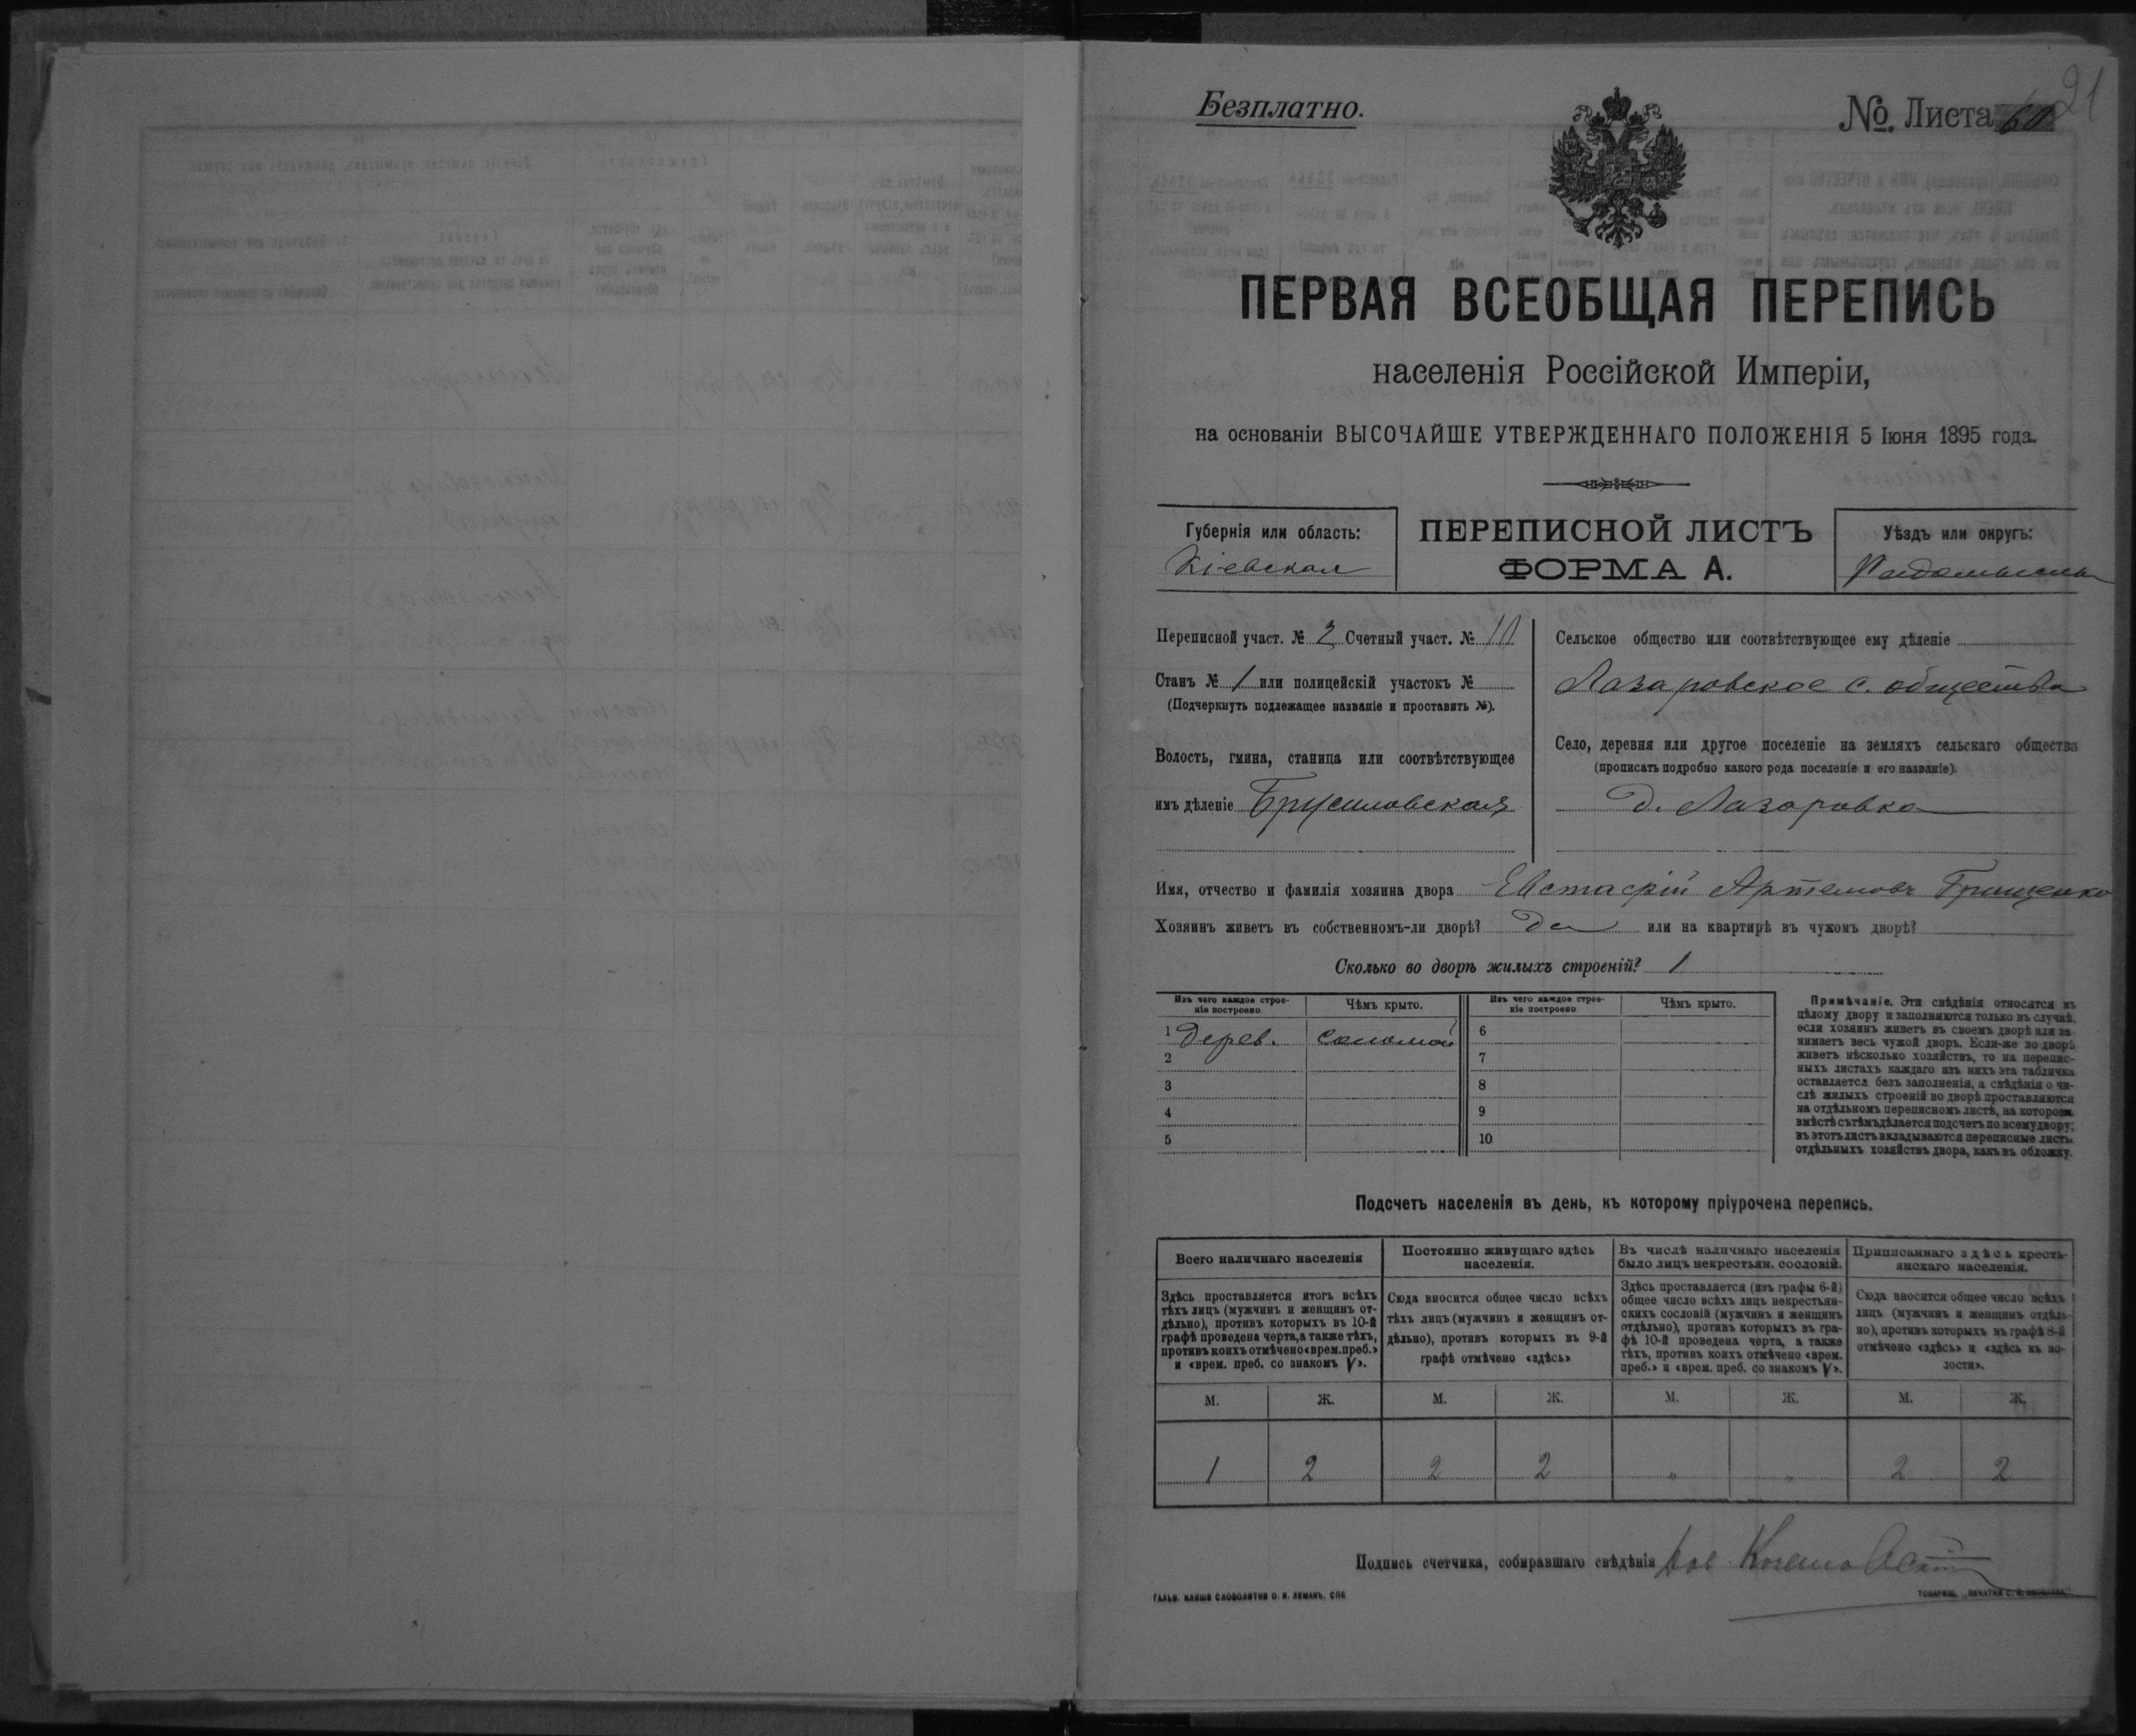 Безплатно.
№. Листа 60
21
ПЕРВАЯ ВСЕОБЩАЯ ПЕРЕПИСЬ
населенія Россійской Имперіи,
на основаніи ВЫСОЧАЙШЕ УТВЕРЖДЕННАГО ПОЛОЖЕНІЯ 5 Іюня 1895 года.
Губернія или область:
Кіевская
ПЕРЕПИСНОЙ ЛИСТЪ
ФОРМА А.
Уѣздъ или округъ:
Переписной участ. № 2 Счетный участ. №
Станъ № 1 или полицейскій участокъ №
(Подчеркнуть подлежащее названіе и проставить №).
Волость, гмина, станица или соотвѣтствующее
имъ дѣленіе Брусиловская
Сельское общество или соотвѣтствующее ему дѣленіе
Лазаровское с. общество
Село, деревня или другое поселеніе на земляхъ сельскаго общества
(прописать подробно какого рода поселеніе и его названіе).
д. Лазаровка
Имя, отчество и фамилія хозяина двора Артемовъ Грищенко
Хозяинъ живетъ въ собственномъ-ли дворѣ? Да или на квартирѣ въ чужомъ дворѣ?
Сколько во дворѣ жилыхъ строеній? 1
Изъ чего каждое строе-
ніе построено
Чѣмъ крыто.
Изъ чего каждое строе-
ніе построено
Чѣмъ крыто.
1 Дерев. соломой
2
3
4
5
6
7
8
9
10
Примѣчаніе. Эти свѣдѣнія относятся къ
цѣлому двору и заполняются только въ случаѣ,
если хозяинъ живетъ въ своемъ дворѣ или за-
нимаетъ весь чужой дворъ. Если-же во дворѣ
живетъ нѣсколько хозяйствъ, то на перепис-
ныхъ листахъ каждаго изъ нихъ эта табличка
оставляется безъ заполненія, а свѣдѣнія о чи-
слѣ жилыхъ строеній во дворѣ проставляются
на отдѣльномъ переписномъ листѣ, на которомъ
вмѣстѣ съ тѣмъ дѣлается подсчетъ по всему двору;
въ этотъ листъ вкладываются переписные листы
отдѣльныхъ хозяйствъ двора, какъ въ обложку.
Подсчетъ населенія въ день, къ которому пріурочена перепись.
Всего наличнаго населенія
Здѣсь проставляется итогъ всѣхъ
тѣхъ лицъ (мужчинъ и женщинъ от-
дѣльно), противъ которыхъ въ 10-й
графѣ проведена черта, а также тѣхъ,
противъ коихъ отмѣчено «врем. преб.»
и «врем. преб. со знакомъ V».
Постоянно живущаго здѣсь
населенія.
Сюда вносится общее число всѣхъ
тѣхъ лицъ (мужчинъ и женщинъ от-
дѣльно), противъ которыхъ въ 9-й
графѣ отмѣчено «здѣсь»
Въ числѣ наличнаго населенія
было лицъ некрестьян. сословій.
Здѣсь проставляется (изъ графы 6-й)
общее число всѣхъ лицъ некрестьян-
скихъ сословій (мужчинъ и женщинъ
отдѣльно), противъ которыхъ въ гра-
фѣ 10-й проведена черта, а также
тѣхъ, противъ коихъ отмѣчено «врем.
преб.» и «врем. преб. со знакомъ V».
Приписаннаго здѣсь кресть-
янскаго населенія.
Сюда вносится общее число всѣхъ
лицъ (мужчинъ и женщинъ отдѣль-
но), противъ которыхъ въ графѣ 8-й
отмѣчено «здѣсь» и «здѣсь къ во-
лости».
М. Ж. М. Ж. М. Ж. М. Ж.
1 2 2 2 " " 2 2
Подпись счетчика, собиравшаго свѣдѣнія
ГАЛЬВ. КЛИШЕ СЛОВОЛИТНИ О. И. ЛЕМАНЪ, СПБ